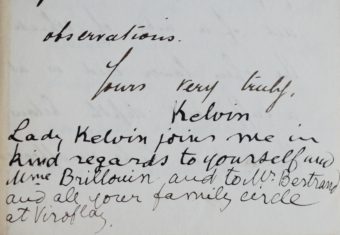 observations.
Yours very truly,
Kelvin
Lady Kelvin joins me in
kind regards to yourself and
Mme Brillouin and to Mr. Bertrand
and all your family circle
at Viroflay.